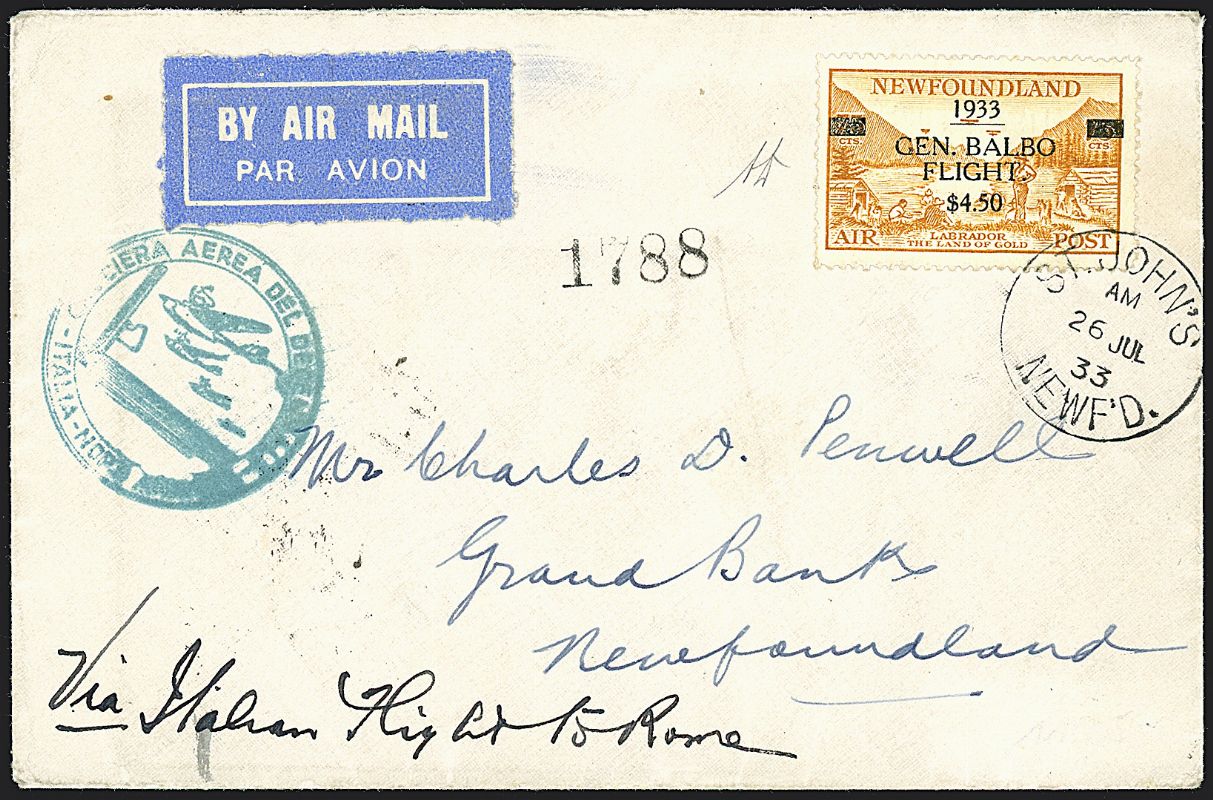 BY AIR MAIL
PAR AVION
NEWFOUNDLAND
1933
CTS. CTS.
GEN. BALBO
FLIGHT.
$4.50
LABRADOR
THE LAND OF GOLD
AIR POST
1788
ST. JOHN'S
AM
26 JUL
33
NEWF'D.
CIERA AEREA DEL
ITALIA-NORD
Mr Charles D. Penwell
Grand Bank
Newfoundland
Via Italian Flight to Rome